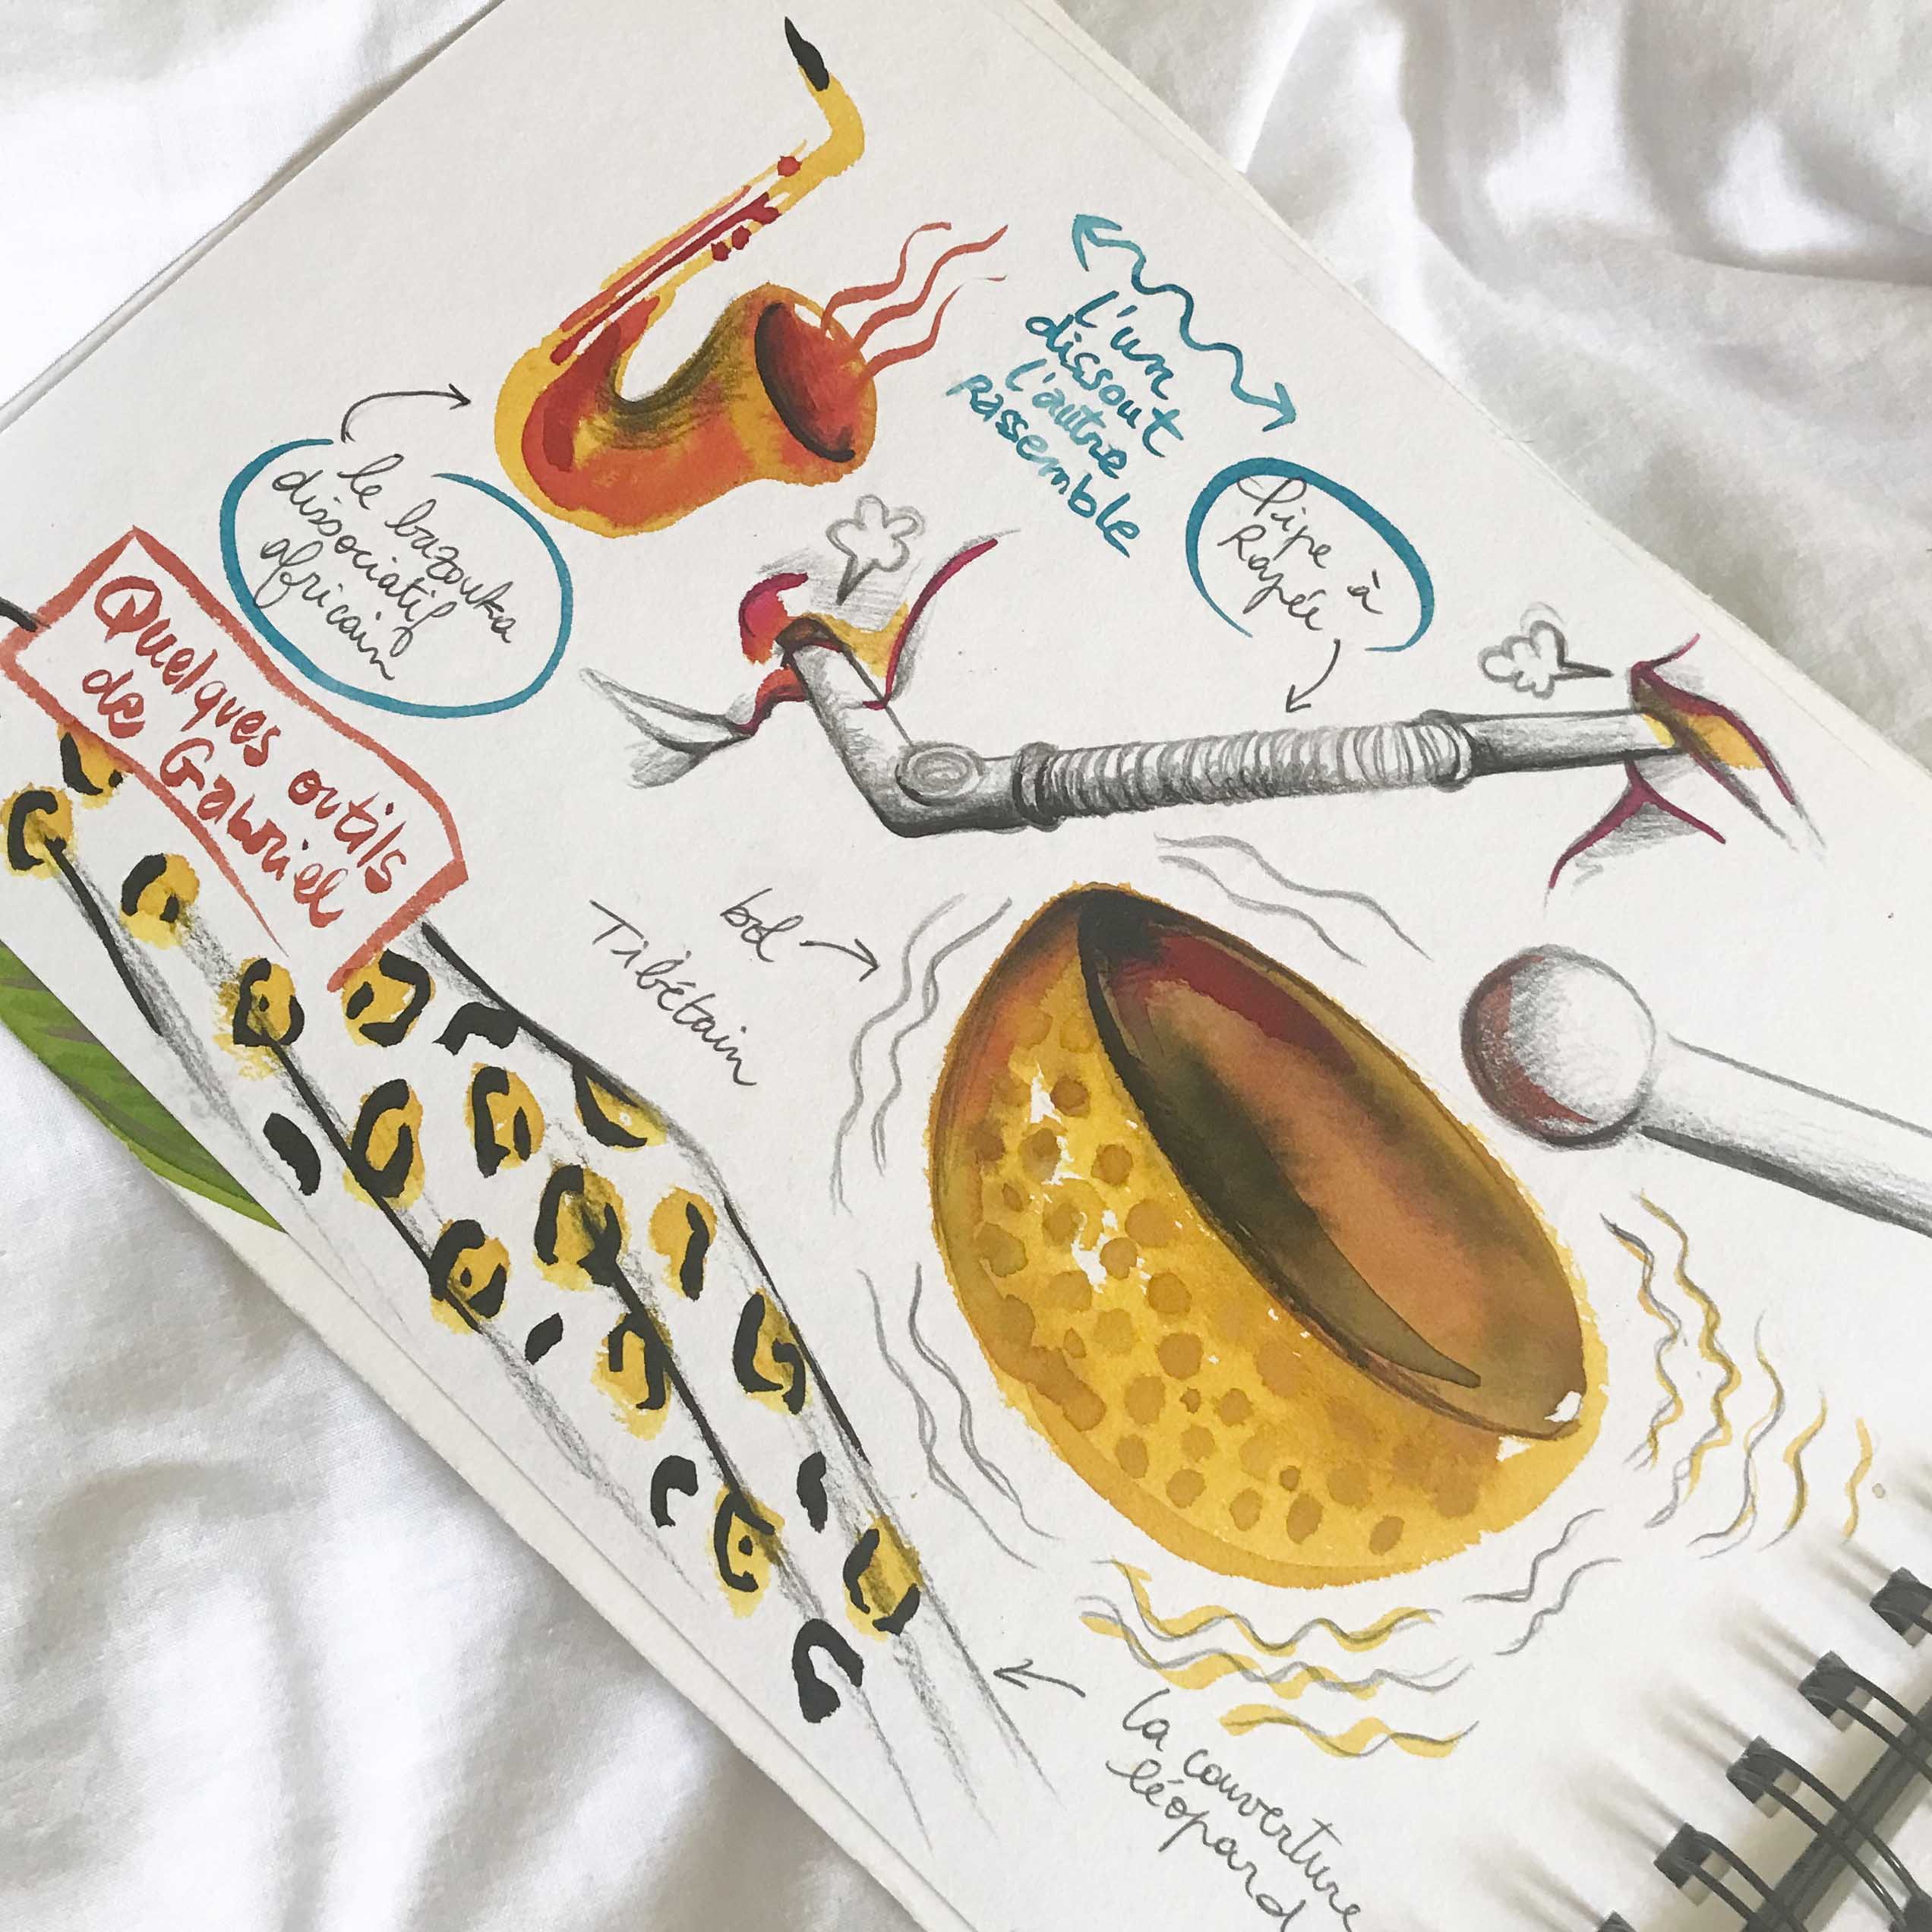 Quelques outils
de Gabriel
le bazouka
dissociatif
africain
l'un
dissout
l'autre
Rassemble
Pipe à
Rapée
bol
Tibétain
la couverture
léopard